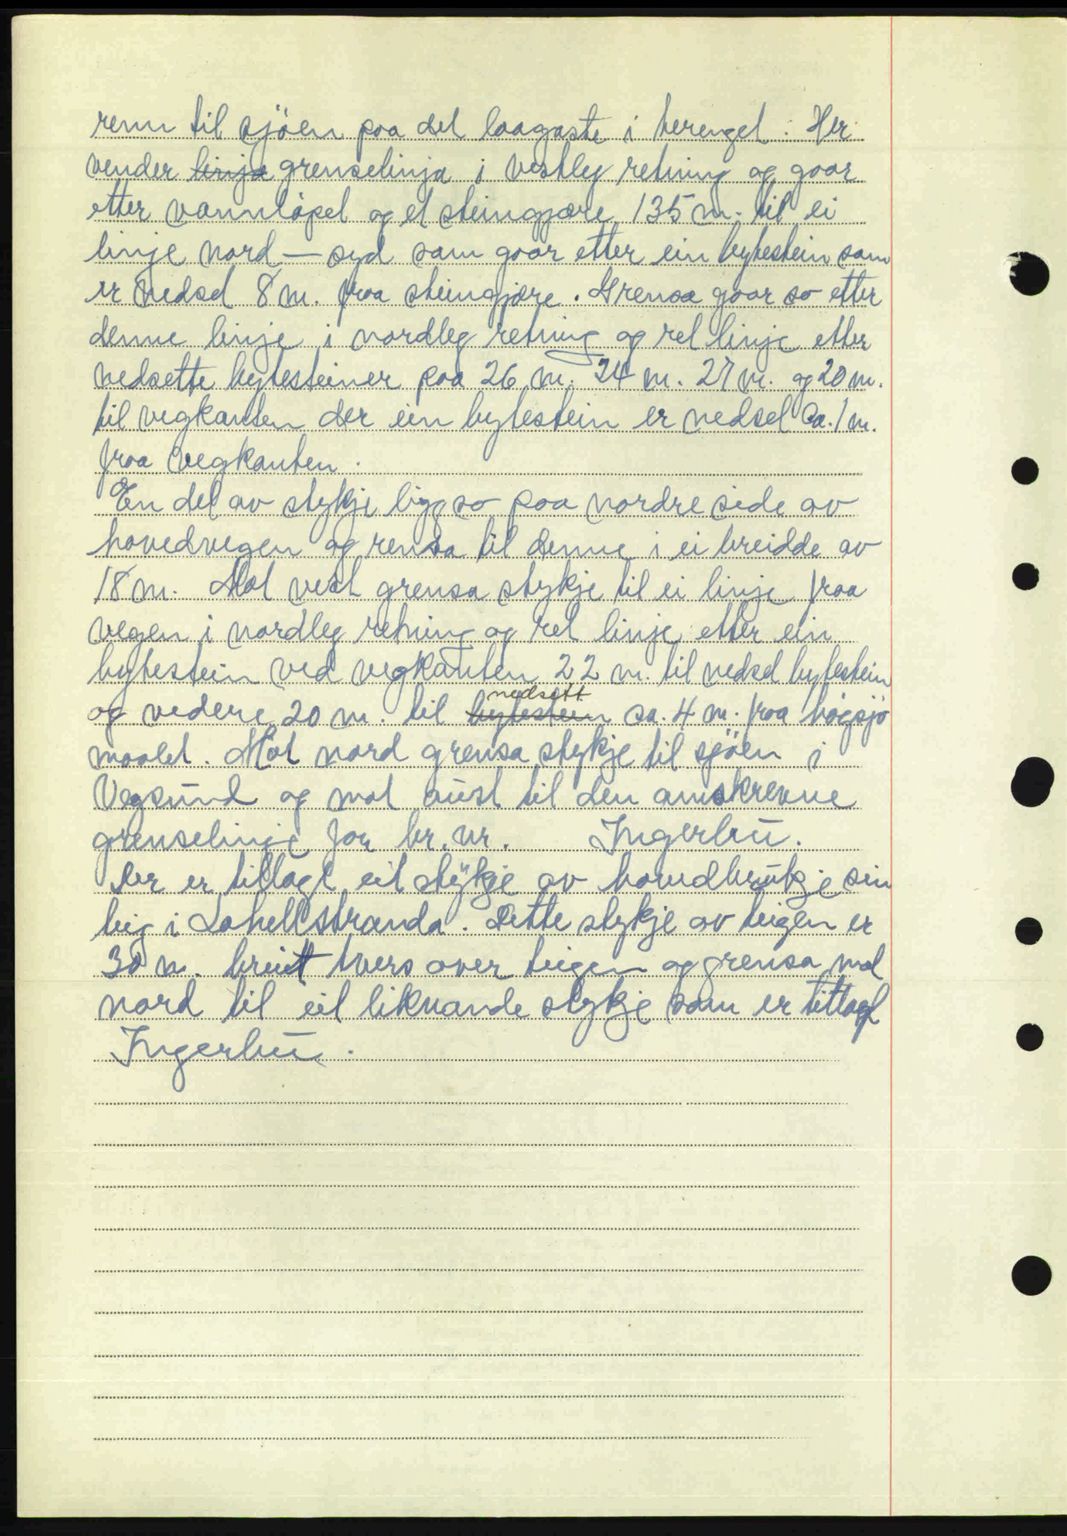 renn til sjöen paa det laagaste i terenget. Her
vender linja grenselinja i vestleg retning og gaar
etter vannlöpet og et steingjære 135 m. til ei
linje nord — syd som gaar etter ein bytestein som
er nedset 8 m. fraa steingjære. Grensa gaar so etter
denne linje i nordleg retning og ret linje etter
nedsette bytesteiner paa 26 m. 24 m. 27 m. og 20 m.
til vegkanten der ein bytestein er nedset ca. 1 m.
fraa vegkanten.
En del av stykje ligg so paa nordre side av
hovedvegen og rensa til denne i ei breidde av
18 m. Mot vest grensa stykje til ei linje fraa
vegen i nordleg retning og ret linje etter ein
bytestein ved vegkanten 22 m. til nedset bytestein
og videre 20 m. til bytestein nedsett ca. 4 m. fraa högsjö
maalet. Mot nord grensa stykje til sjöen i
Vegsund og mot aust til den omskrevne
grenselinje for br. nr. Ingerbu.
Der er tillagt eit stykje av hovudbrukje sin
teig i Lahellstranda. Dette stykje av teigen er
30 m. breitt tvers over teigen og grensa mot
nord til eit liknande stykje som er tillagt
Ingerbu.